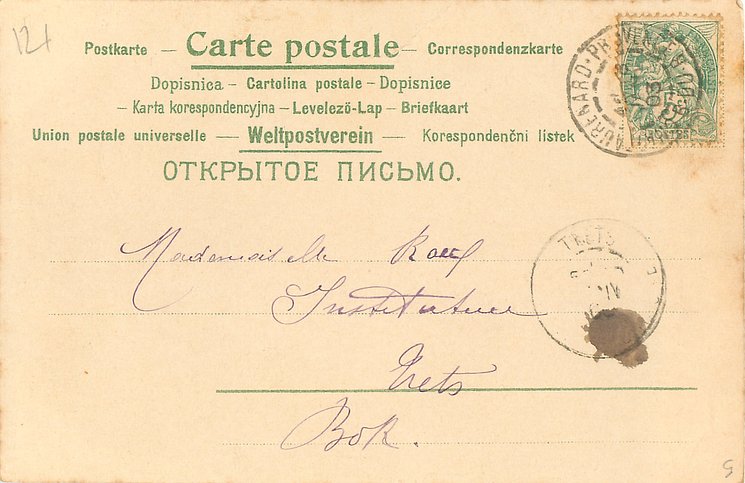 121
Postkarte – Carte postale – Correspondenzkarte
Dopisnica – Cartolina postale – Dopisnice
– Karta korespondencyjna – Levelező-Lap – Briefkaart
Union postale universelle – Weltpostverein – Korespondenční listek
ОТКРЫТОЕ ПИСЬМО.
TRETS
Mademoiselle
Institutrice
Trets